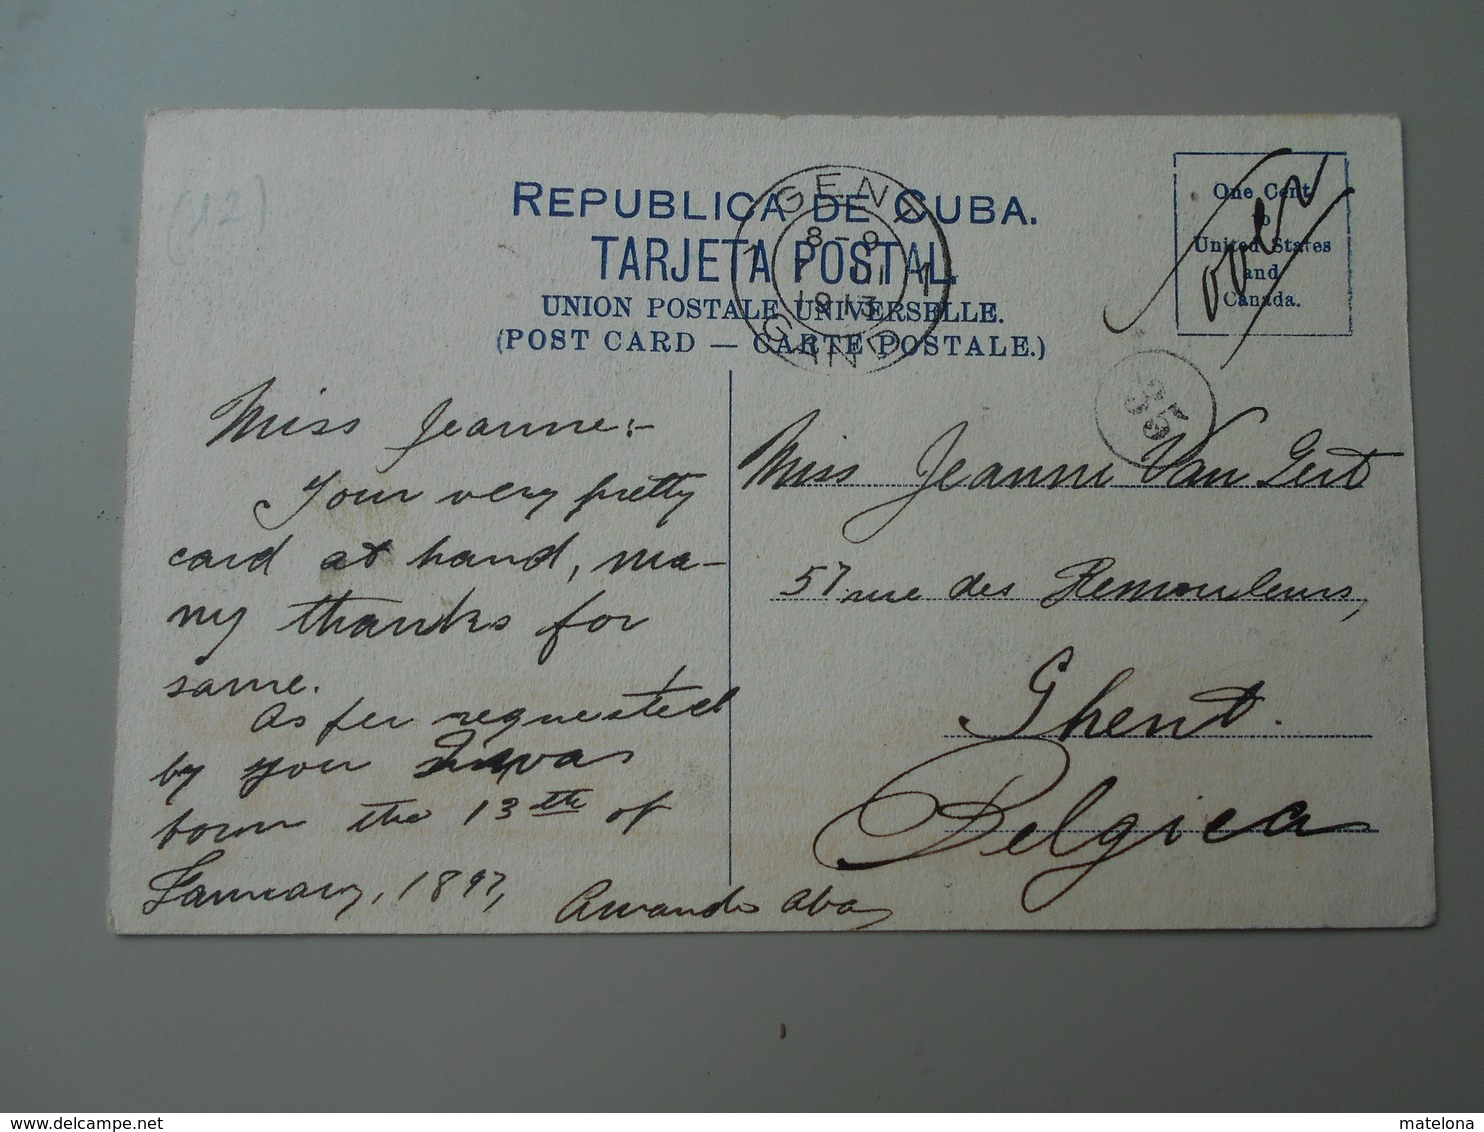 (12)
REPUBLICA DE CUBA.
TARJETA POSTAL
UNION POSTALE UNIVERSELLE.
(POST CARD — CARTE POSTALE.)
GENT
8-9
1913
GAND
One Cent
to
United States
and
Canada.
over
35
Miss Jeanne:-
Your very pretty
card at hand, ma-
ny thanks for
same.
As per requested
by you I was
born the 13th of
January, 1897,
Miss Jeanne Van Gert
57 rue des Remouleurs,
Ghent.
Belgica
delcampe.net
matelona